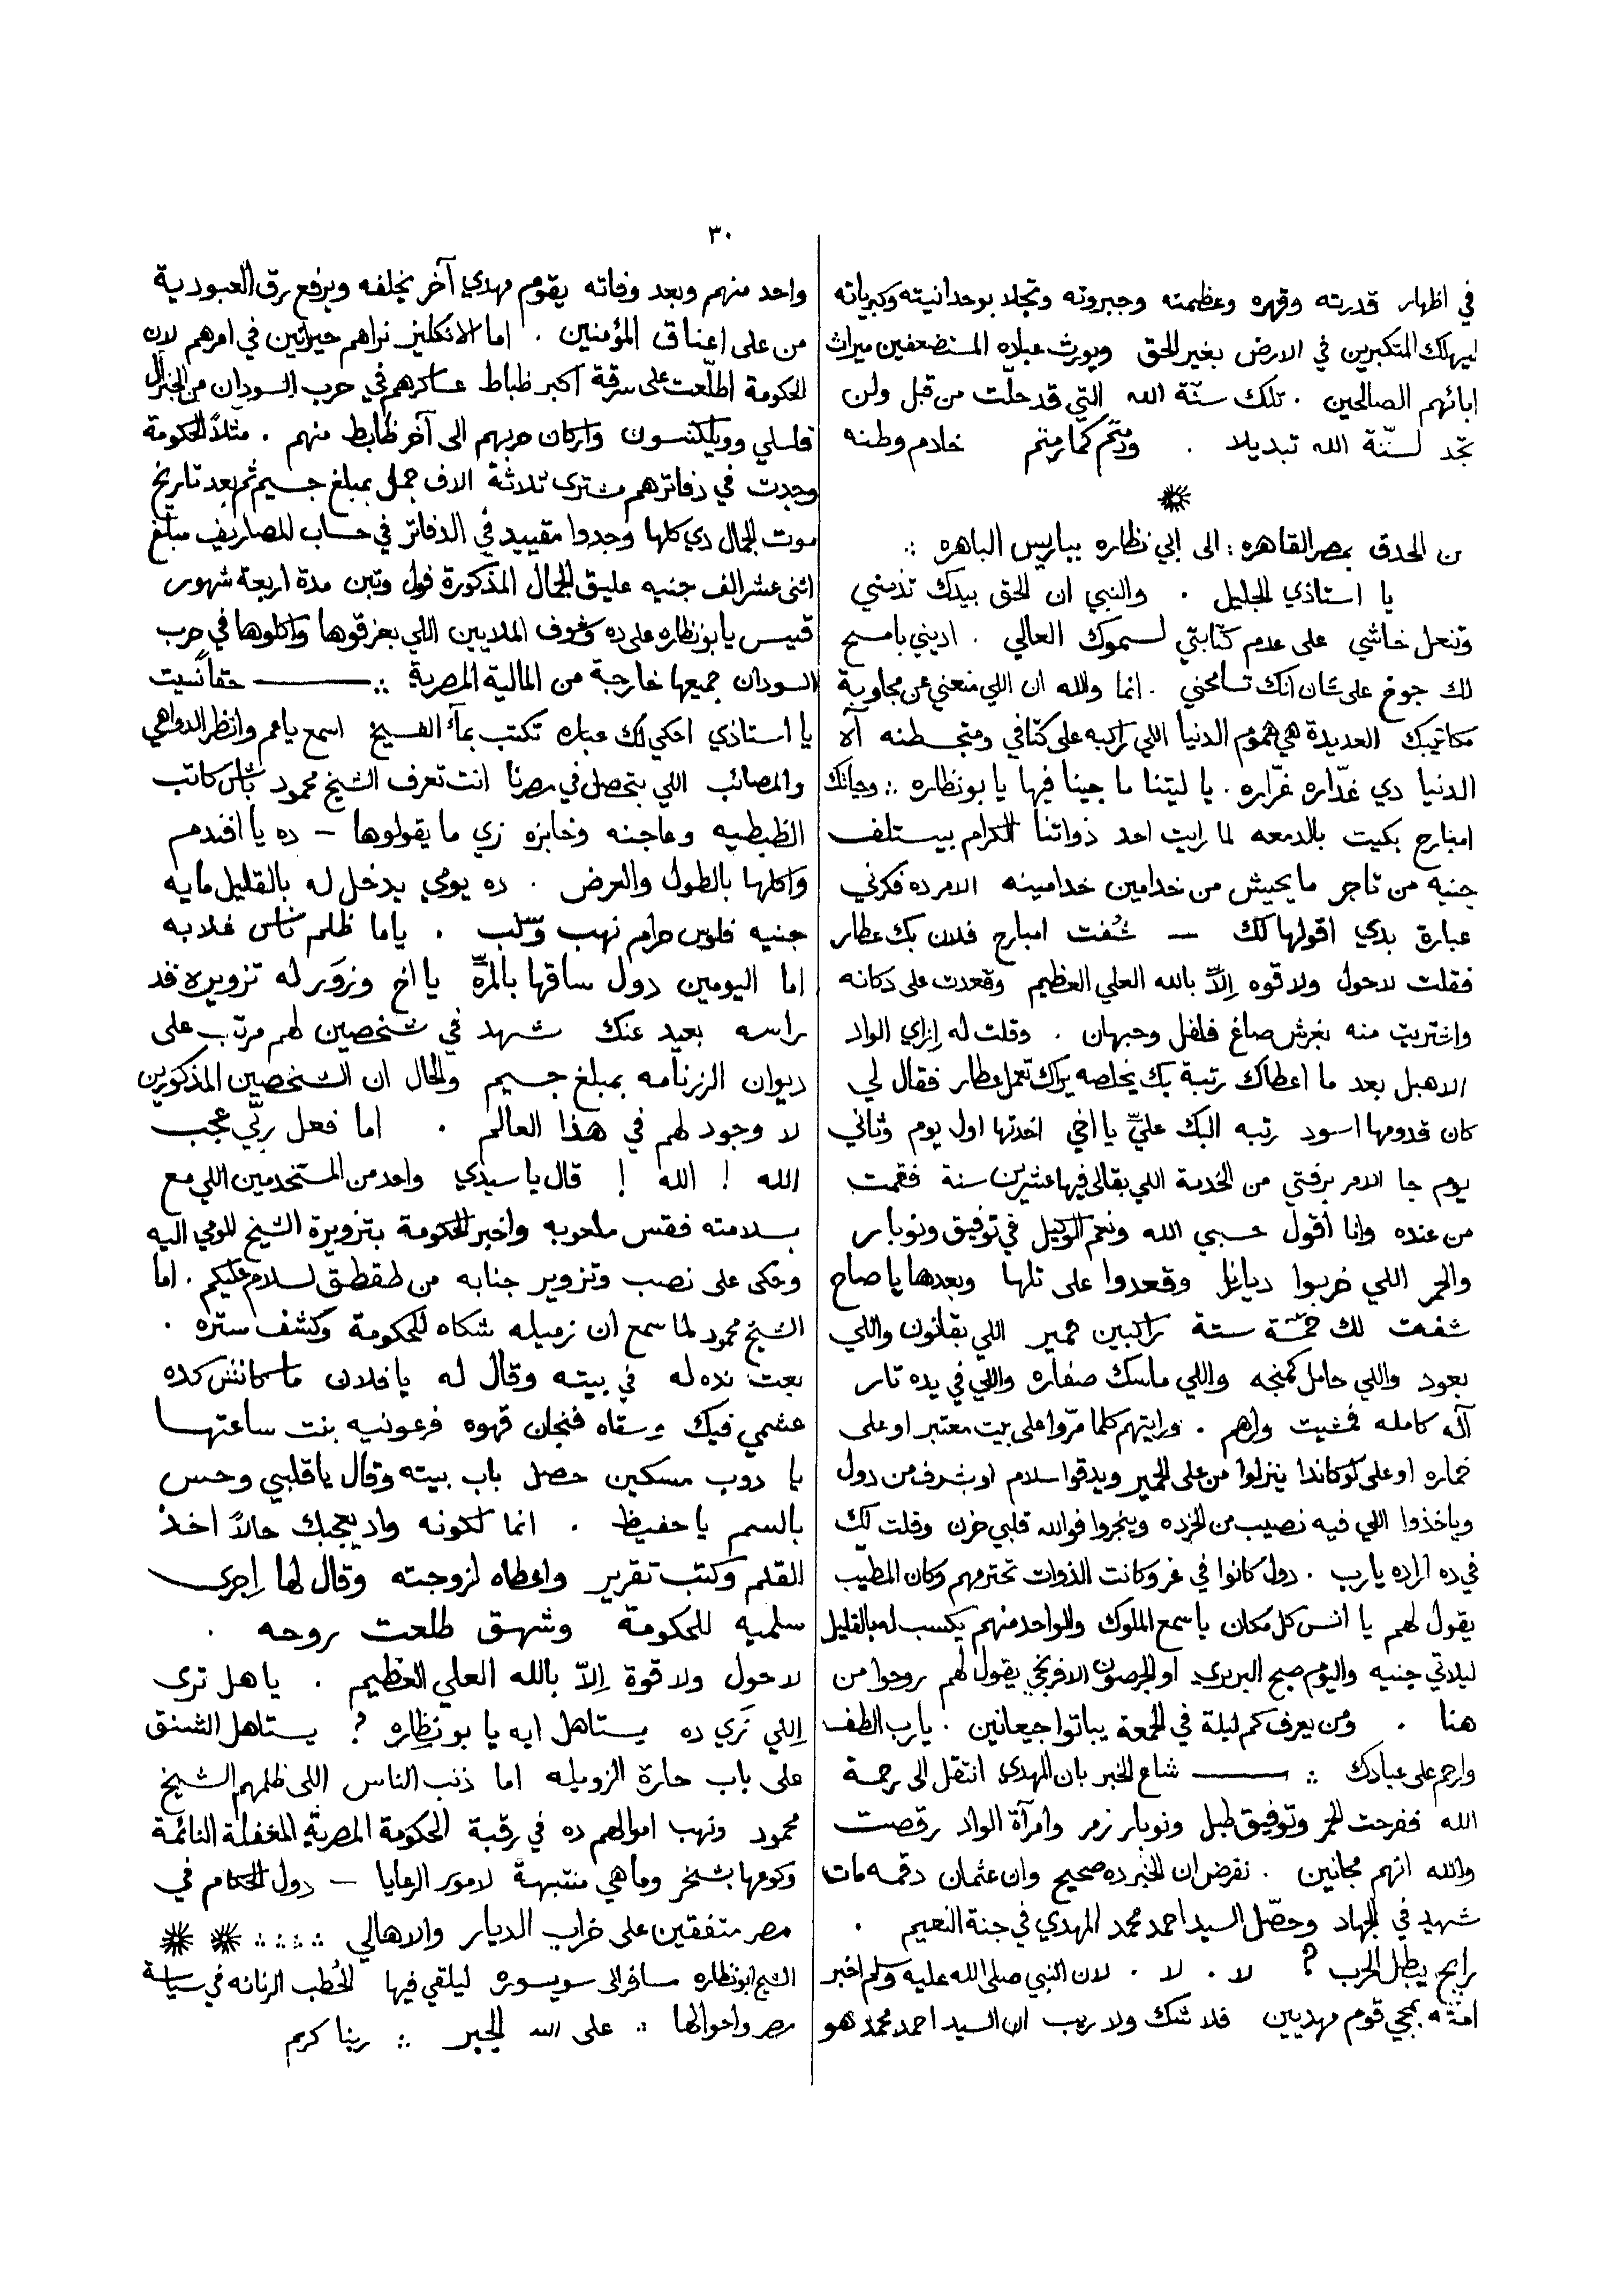 ٣٠
في اظهار قدرته وقهره وعظمته وجبروته وتجلا بوحدانيته وكبريائه
ليهلك المتكبرين في الارض بغير الحق ويورث عباده المستضعفين ميراث
ابائهم الصالحين . تلك سنّة الله التي قد حلّت من قبل ولن
تجد لسنّة الله تبديلا . ودمتم كما رمتم خادم وطنه
من الحدق بمصر القاهره : الى ابي نظاره بباريس الباهره ::
يا استاذي الجليل . والنبي ان الحق بيدك تذمني
وتنعل خاشي على عدم كتابتي لسموك العالي . اديني بامسح
لك جوخ على شان انك تسامحني . انما والله ان اللي منعني عن مجاوبة
مكاتيبك العديدة هي هموم الدنيا اللي راكبه على كتافي ومتجسطنه آه
الدنيا دي غدّاره غرّاره . يا ليتنا ما جينا فيها يا بو نظاره :: وحياتك
امبارح بكيت بالدمعه لما رايت احد ذواتنا الكرام بيستلف
جنيه من تاجر ما يجيش من خدامين خدامينه الامر ده فكرني
عبارة بدي اقولها لك — شُفت امبارح فلان بك عطار
فقلت لا حول ولا قوه إلاّ بالله العلي العظيم وقعدت على دكانه
واشتريت منه بغرش صاغ فلفل وحبهان . وقلت له إزاي الواد
الاهبل بعد ما اعطاك رتبة بك يخلصه يراك تعمل عطار فقال لي
كان قدومها اسود رتبه البك عليّ يا اخي اخدتها اول يوم وتاني
يوم جا الامر برفتي من الخدمة اللي بقالي فيها عشرين سنة فقمت
من عنده وانا أقول حسبي الله ونعم الوكيل في توفيق ونوبار
والحمر اللي خربوا ديارنا وقعدوا على تلها وبعدها يا صاح
شفت لك خمسة ستة راكبين حمير اللي بقانون واللي
بعود واللي حامل كمنجه واللي ماسك صفاره واللي في يده تار
آله كامله فمشيت وراهم . ورايتهم كلما مرّوا على بيت معتبر او على
خماره او على لوكاندا ينزلوا من على الحمير ويدقوا سلام او بشرف من دول
وياخذوا اللي فيه نصيب من الخرده وينجروا فوالله قلبي حزن وقلت لك
في ده اراده يا رب . دول كانوا في عز وكانت الذوات تحترمهم وكان المطيب
يقول لهم يا انس كل مكان يا سمع الملوك والواحد منهم يكسب له بالقليل
ليلاتي جنيه واليوم صبح البربري او الجرصون الافرنجي يقول لهم روحوا من
هنا . ومن يعرف كم ليلة في الجمعة يباتوا جيعانين . يا رب الطف
وارحم على عبادك :: — شاع الخبر بان المهدي انتقل الى رحمة
الله ففرحت الحمر وتوفيق طبل ونوبار زمر وامرآة الواد رقصت
والله انهم مجانين . نفرض ان الخبر ده صحيح وان عثمان دقمه مات
شهيد في الجهاد وحصّل السيد احمد محمد المهدي في جنة النعيم .
رايح يبطل الحرب ؟ لا . لا . لان النبي صلى الله عليه وسلم اخبر
امته بمجي قوم مهديين فلا شك ولا ريب ان السيد احمد محمد هو
واحد منهم وبعد وفاته يقوم مهدي آخر يخلفه ويرفع رق العبودية
من على اعناق المؤمنين . اما الانكليز نراهم حيرانين في امرهم لان
الحكومة اطلّعت على سرقة اكبر ظباط عساكرهم في حرب السودان من الجنرال
قلسلي وويلكنسون واركان حربهم الى آخر ظابط منهم . مثلاً الحكومة
وجدت في دفاترهم مشترى ثلاثة الاف جمل بمبلغ جسيم ثم بعد تاريخ
موت الجمال دي كلها وجدوا مقييد في الدفاتر في حساب المصاريف مبلغ
اثنى عشر الف جنيه عليق الجمال المذكورة فول وتبن مدة اربعة شهور
قييس يا بو نظاره على ده وشوف الملايين اللي بعزقوها واكلوها في حرب
السودان جميعها خارجة من المالية المصرية :: — حقا نسيت
يا استاذي احكي لك عباره تكتب بمآ الفسيخ اسمع يا عم وانظر الدواهي
والمصائب اللي بتحصل في مصرنا انت تعرف الشيخ محمود باش كاتب
الظبطيه وعاجنه وخابزه زي ما يقولوها — ده يا افندم
واكلها بالطول والعرض . ده يومي يدخل له بالقليل مايه
جنيه فلوس حرام نهب وسلب . ياما ظلم ناس غلابه
اما اليومين دول ساقها بالمرّة يا اخ وزوّر له تزويره قد
راسه بعيد عنك شهد في شخصين لهم مرتب على
ديوان الرزنامه بمبلغ جسيم والحال ان الشخصين المذكورين
لا وجود لهم في هذا العالم . اما فعل ربّي عجب
الله ! الله ! قال يا سيدي واحد من المستخدمين اللي مع
بسلامته فقس ملعوبه واخبر الحكومة بتزويرة الشيخ المومي اليه
وحكى على نصب وتزوير جنابه من طقطق لسلام عليكم . اما
الشيخ محمود لما سمع ان زميله شكاه للحكومة وكشف ستره .
بعت نده له في بيته وقال له يا فلان ما كانش كده
عشمي فيك وسقاه فنجان قهوه فرعونيه بنت ساعتها
يا دوب مسكين حصل باب بيته وقال يا قلبي وحس
بالسم يا حفيظ . انما لكونه واد يعجبك حالاً اخذ
القلم وكتب تقرير واعطاه لزوجته وقال لها إجري
سلميه للحكومة وشهق طلعت روحه .
لا حول ولا قوة إلاّ بالله العلي العظيم . يا هل ترى
إللي زَي ده يستاهل ايه يا بو نظاره ؟ يستاهل الشنق
على باب حارة الزويله اما ذنب الناس اللي ظلمهم الشيخ
محمود ونهب اموالهم ده في رقبة الحكومة المصرية المغفلة النائمة
وكومها بشخر وما هي منتبهة لامور الرعايا — دول الحكام في
مصر متفقين على خراب الديار والاهالي ::::
الشيخ ابو نظاره مسافر الى سويسره ليلقي فيها الخُطب الرنانه في سياسة
مصر واحوالها :: على الله الجبر :: ربنا كريم